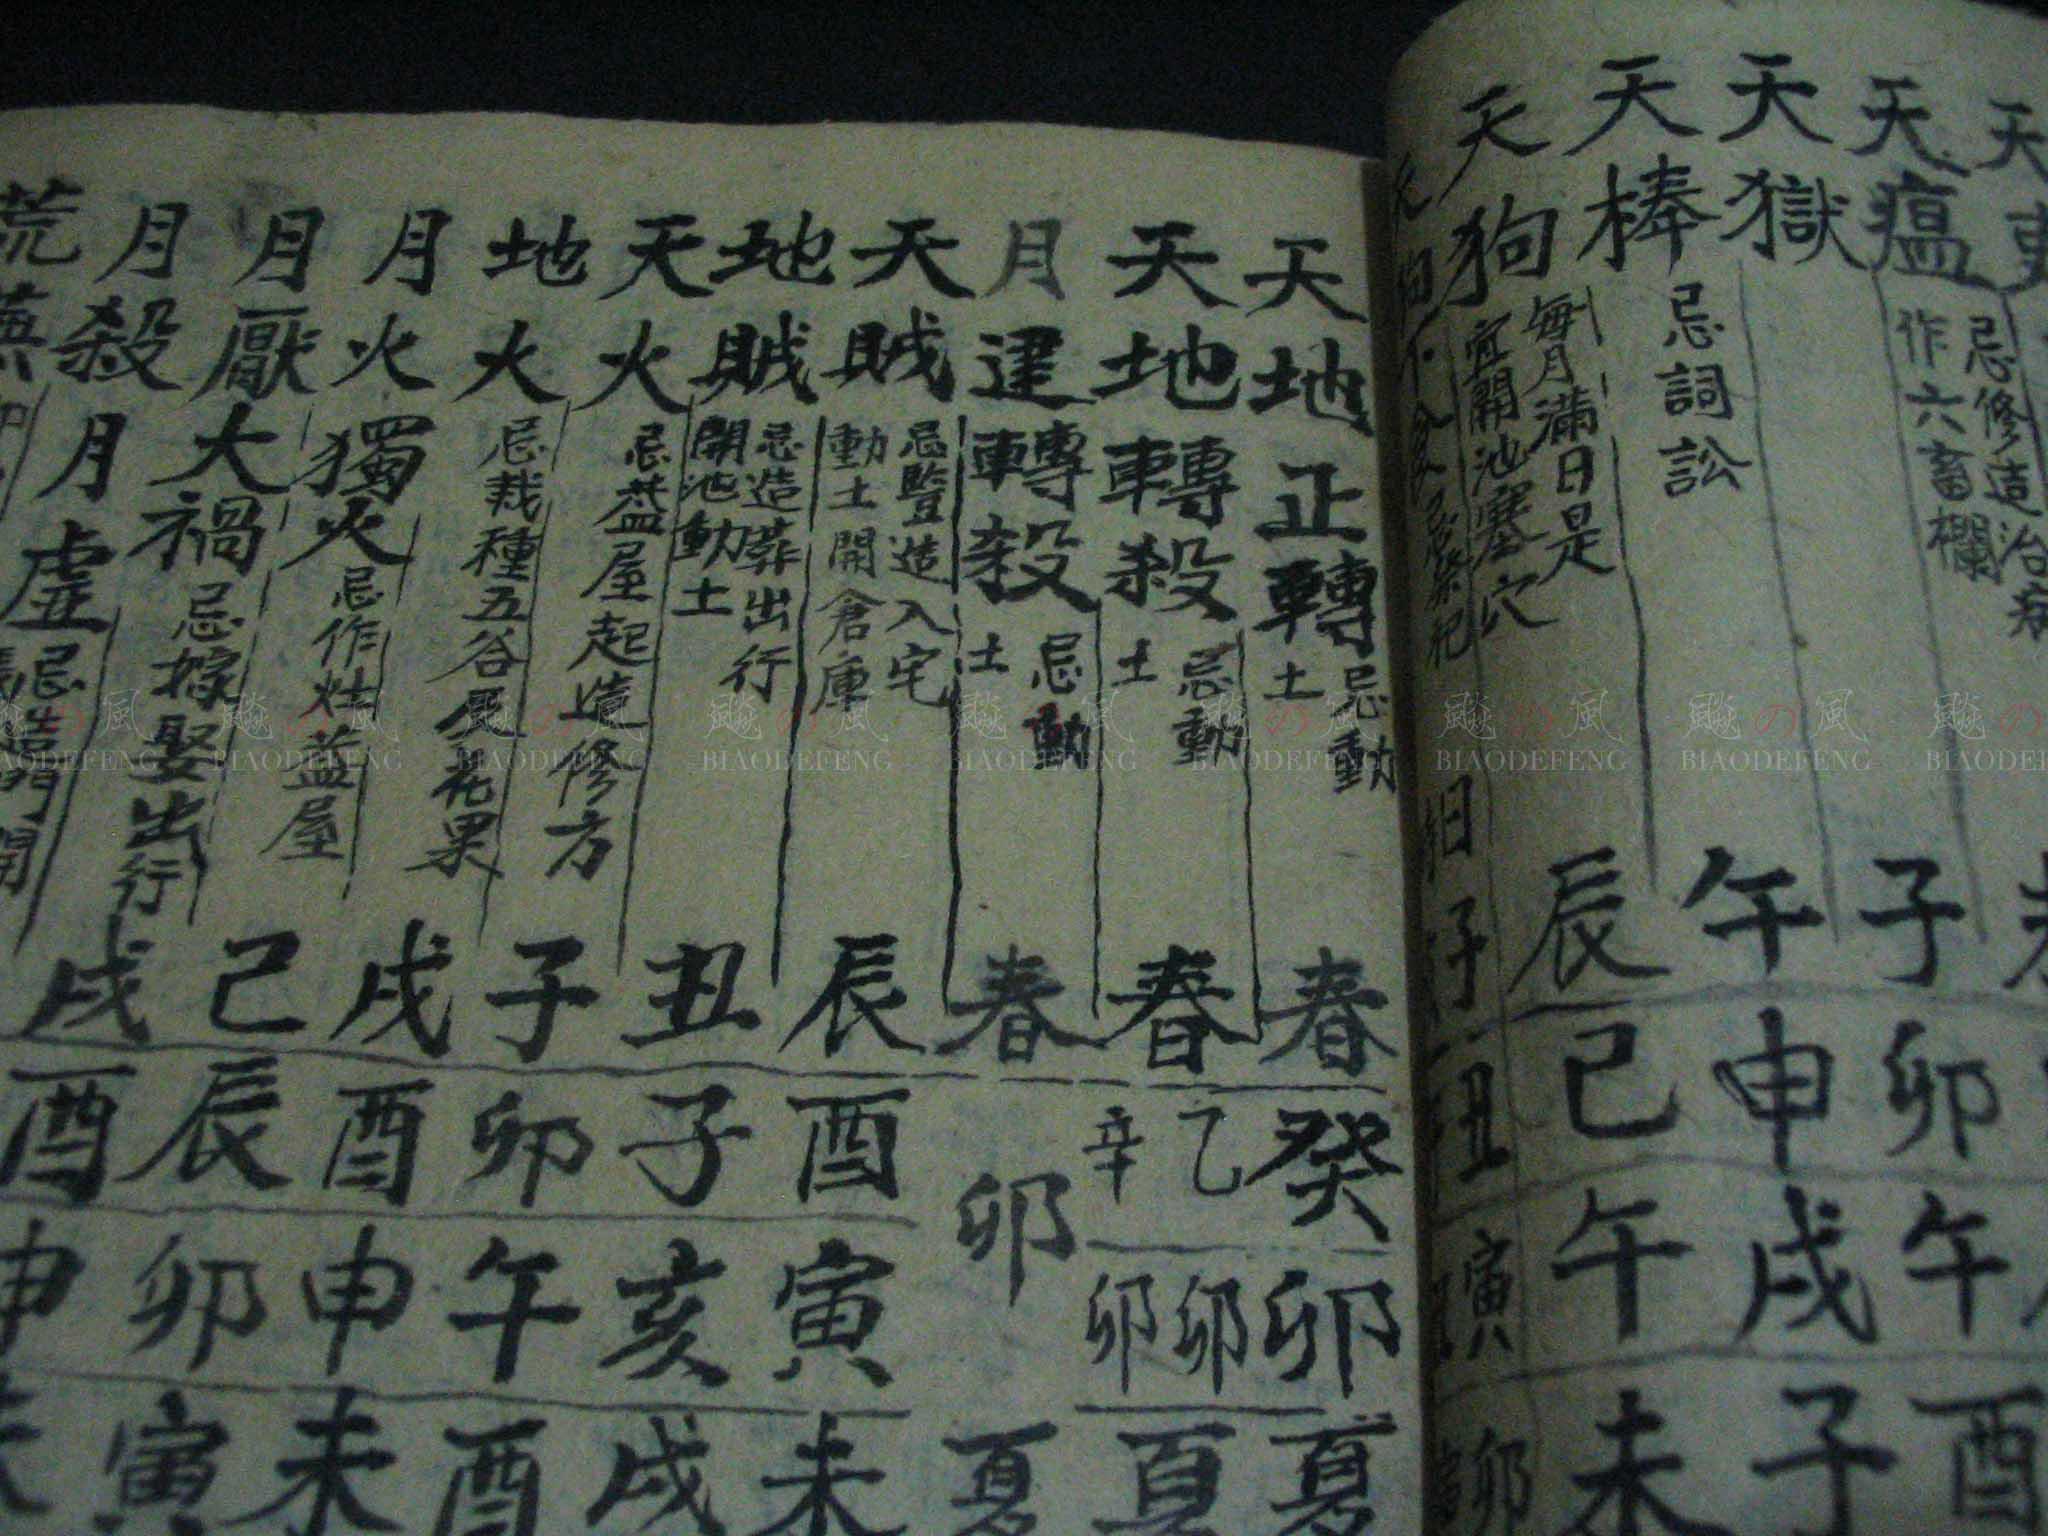 天
瘟
忌修造治病
作六畜欄
子
卯
午
酉
天獄
午
申
戌
子
天棒
忌詞訟
辰
巳
午
未
天狗
每月滿日是
宜開池塞穴
子
丑
寅
卯
天地正轉
忌動土
春
癸
卯
夏
天地轉殺
忌動土
春
乙
辛
卯
卯
夏
月建轉殺
忌動土
春
卯
夏
天賊
忌豎造入宅
動土開倉庫
辰
酉
寅
未
地賊
忌造葬出行
開池動土
丑
子
亥
戌
天火
忌盖屋起造修方
子
卯
午
酉
地火
忌栽種五谷
花果
戌
酉
申
未
月火獨火
忌作灶蓋屋
己
辰
卯
寅
月厭大禍
忌嫁娶出行
戌
酉
申
未
月殺月虛
忌造門開
荒蕪
飈の風
BIAODEFENG
飈の風
BIAODEFENG
飈の風
BIAODEFENG
飈の風
BIAODEFENG
飈の風
BIAODEFENG
飈の風
BIAODEFENG
飈の風
BIAODEFENG